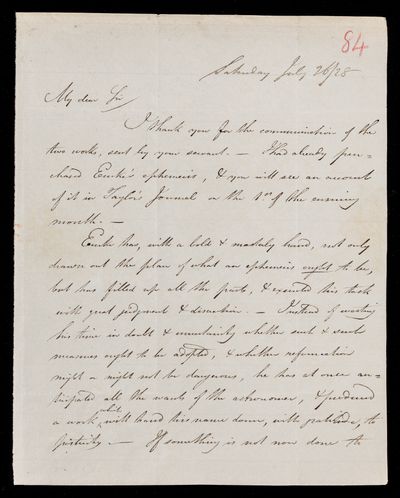 84
Saturday July 26/28
My dear Sir/
I thank you for the communication of the
two works, sent by your servant. — I had already pur-
chased Encke's ephemeris, & you will see an account
of it in Taylor's Journal on the 1st of the ensuing
month. —
Encke has, with a bold & masterly hand, not only
drawn out the plan of what an ephemeris ought to be,
but has filled up all the parts, & executed his task
with great judgment & discretion. — Instead of wasting
his time in doubt & uncertainty whether such & such
measures ought to be adopted, & whether reformation
might or might not be dangerous, he has at once an-
ticipated all the wants of the astronomer, & produced
a work which will hand his name down, with gratitude, to
posterity. — If something is not now done to